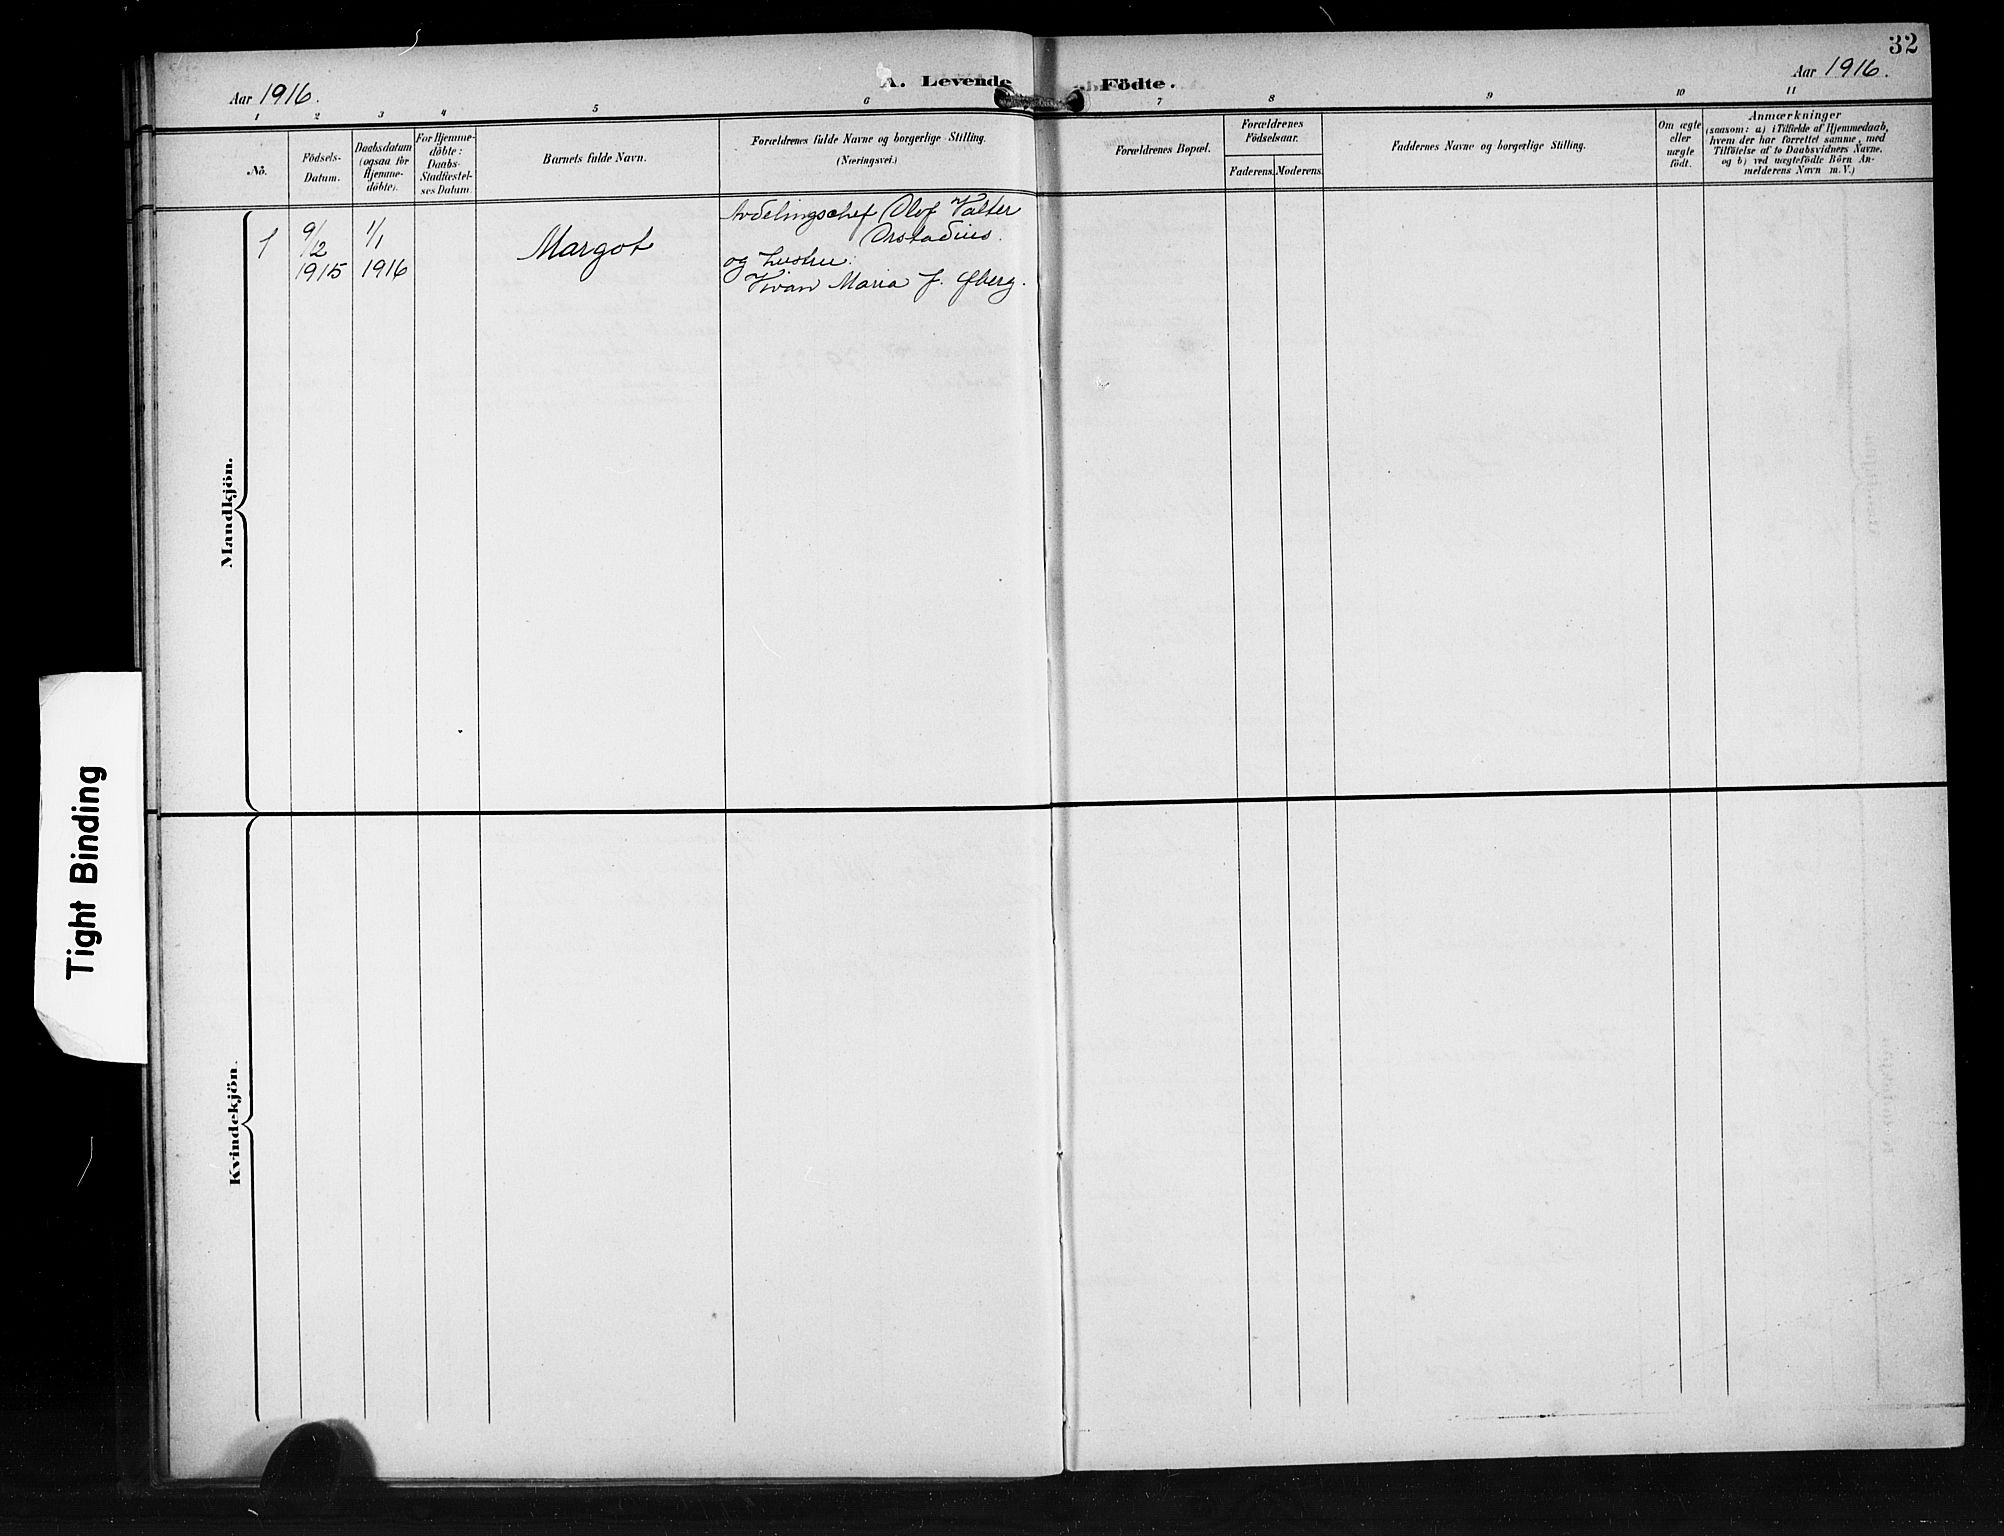 32
Aar 1916.
A. Levende Födte.
Aar 1916.
1 2 3 4 5 6 7 8 9 10 11
No.
Födsels-
Datum.
Daabsdatum
(ogsaa for
Hjemme-
döbte).
For Hjemme-
döbte:
Daabs-
Stadfæstel-
ses Datum.
Barnets fulde Navn.
Forældrenes fulde Navne og borgerlige Stilling.
(Næringsvei.)
Forældrenes Bopæl.
Forældrenes
Födselsaar.
Faderens. Moderens.
Faddernes Navne og borgerlige Stilling.
Om ægte
eller
uægte
födt.
Anmærkninger
(saasom: a) i Tilfælde af Hjemmedaab,
hvem der har forrettet samme, med
Tilföielse af to Daabsvidners Navne,
og b) ved uægtefödte Börn An-
melderens Navn m. V.)
Mandkjön.
1
9/12
1915
1/1
1916
Margot
Avdelingschef Olof Valter
Orstadius.
og hustru:
Vivan Maria J. Øberg.
Kvindekjön.
Tight Binding